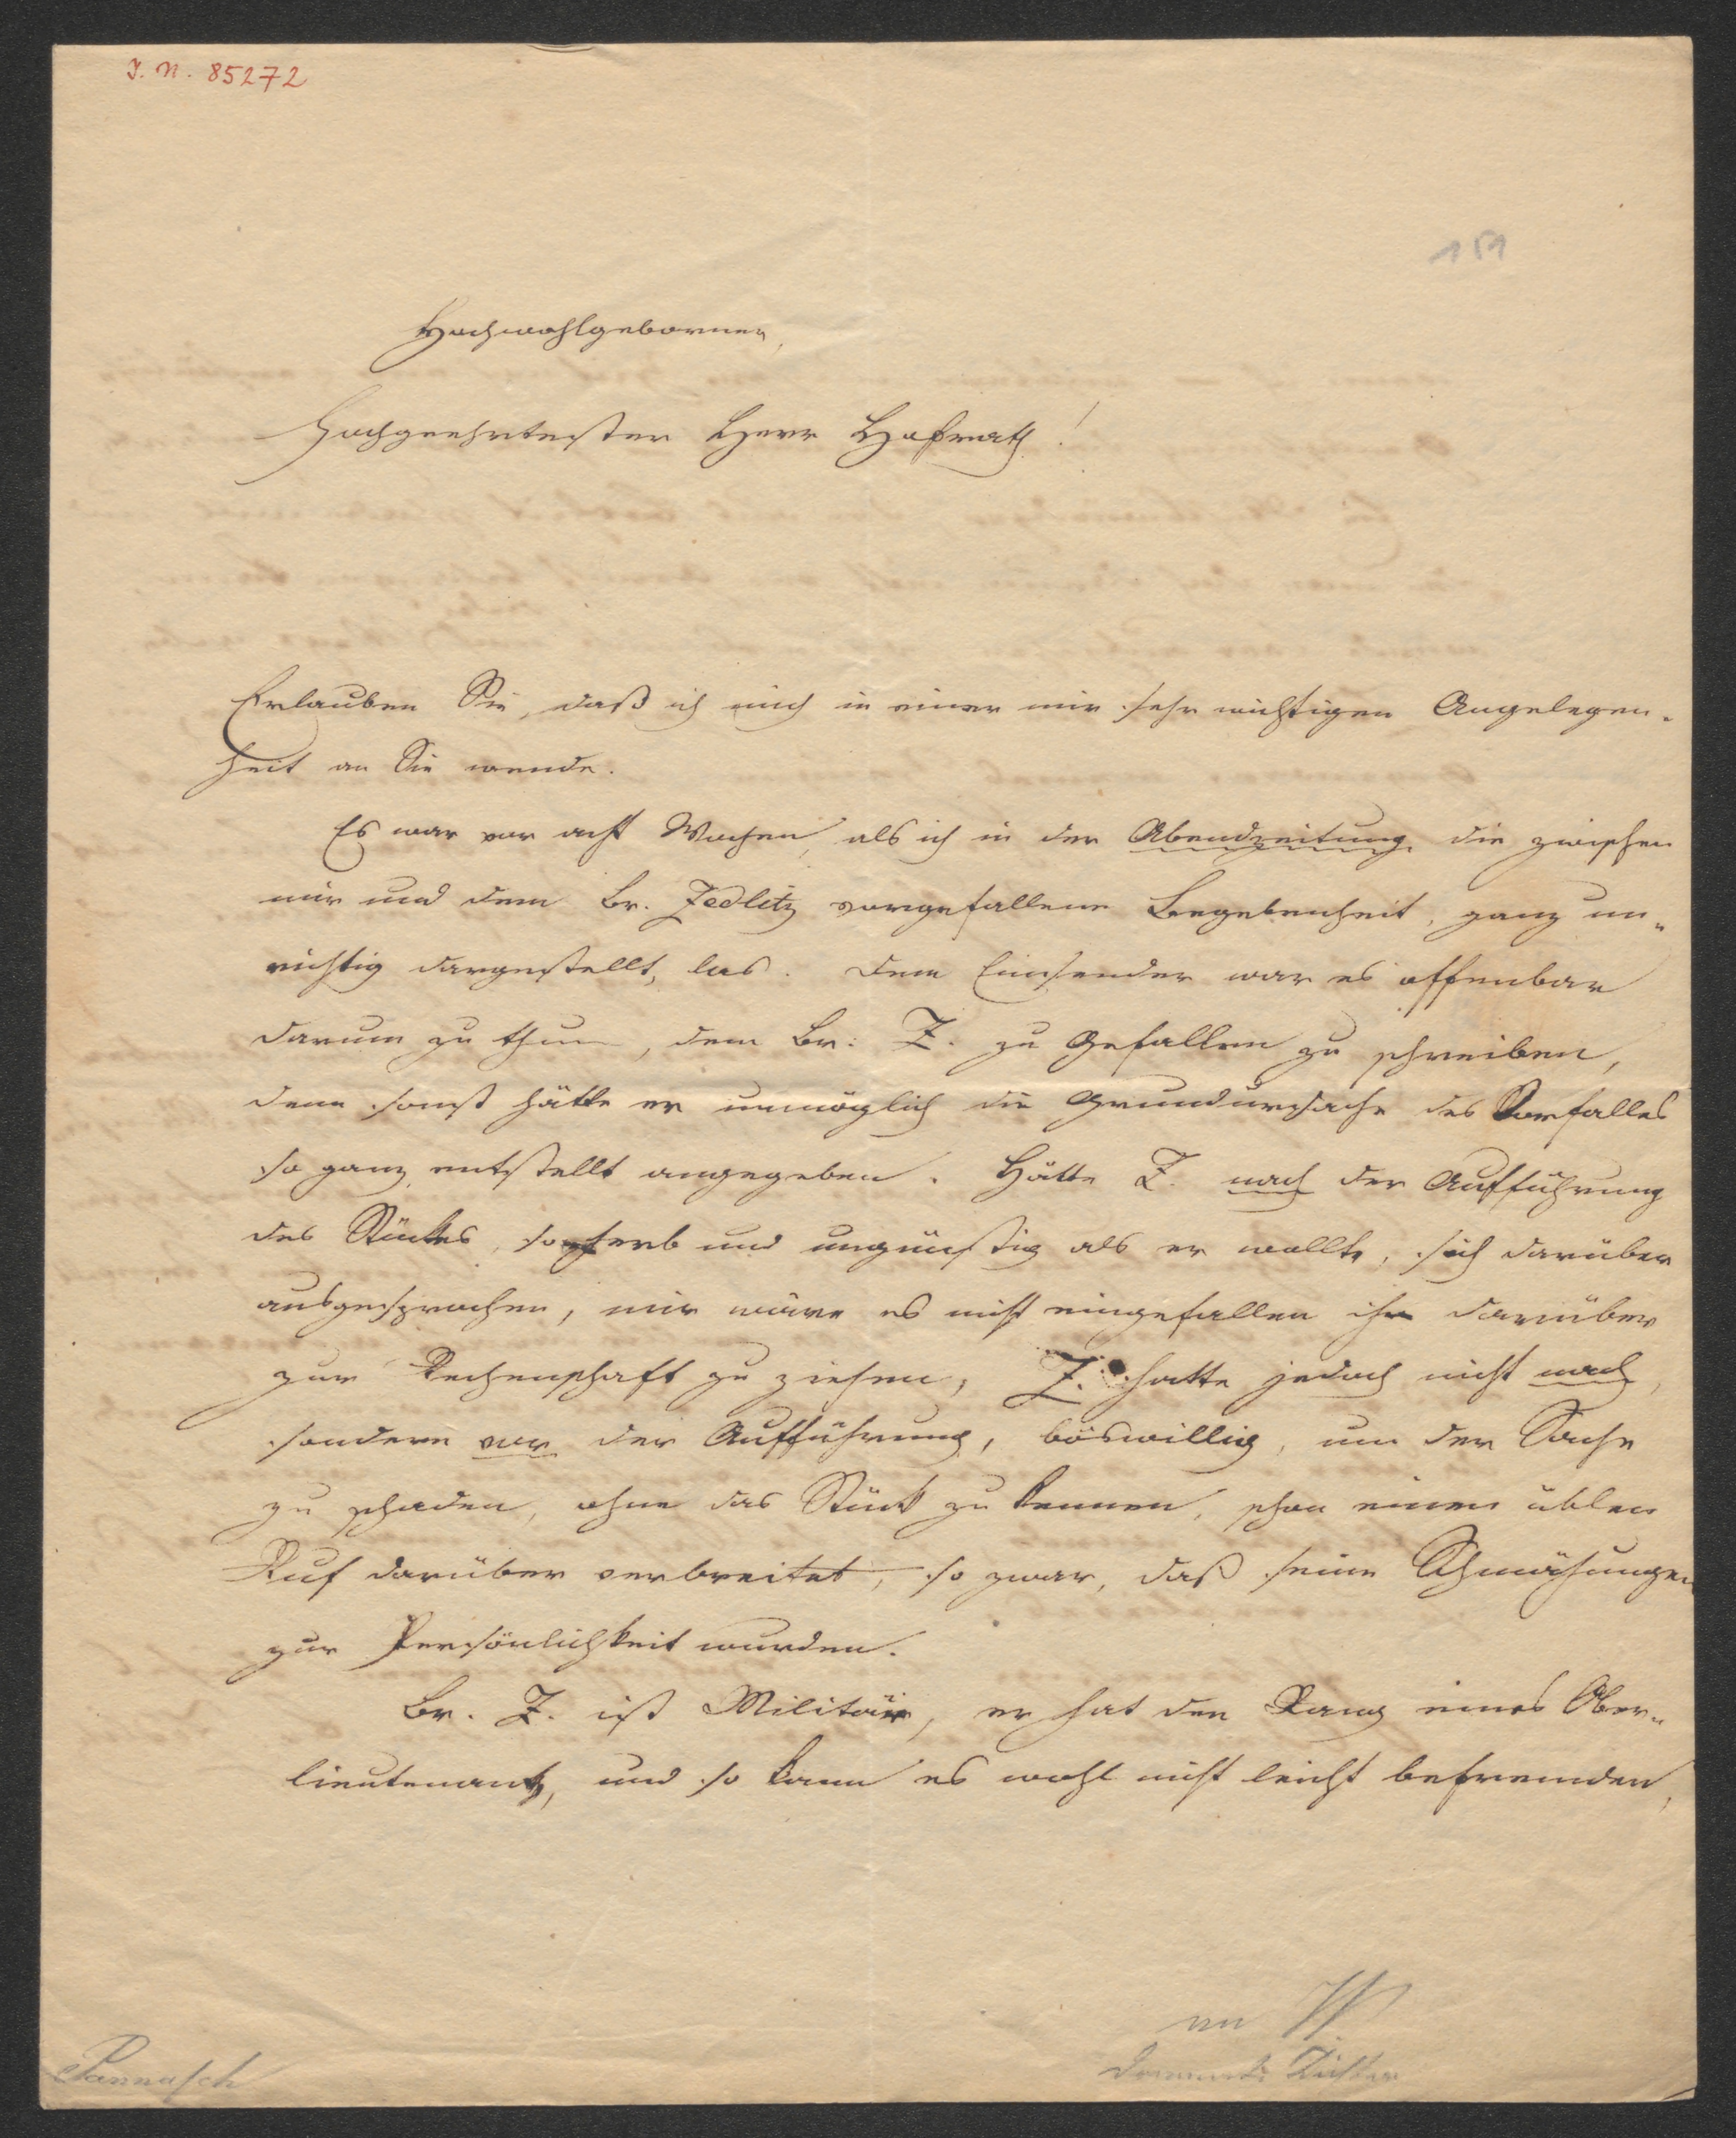 I. N. 85272
151
Hochwohlgeborner,
Hochgeehrtester Herr Hofrath!
Erlauben Sie, daß ich mich in einer mir sehr wichtigen Angelegen-
heit an Sie wende.
Es war vor acht Wochen, als ich in der Abendzeitung die zwischen
mir und dem Br. Zedlitz vorgefallene Begebenheit, ganz un-
richtig dargestellt, las. Dem Einsender war es offenbar
darum zu thun, dem Br: Z. zu Gefallen zu schreiben,
denn sonst hätte er unmöglich die Grundursache des Vorfalles
so ganz entstellt angegeben. Hätte Z. nach der Aufführung
des Stückes, so herb und ungünstig als er wollte, sich darüber
ausgesprochen, mir wäre es nicht eingefallen ihn darüber
zur Rechenschaft zu ziehen, Z. hatte jedoch nicht nach,
sondern vor der Aufführung, böswillig, um der Sache
zu schaden, ohne das Stück zu kennen, schon einen üblen
Ruf darüber verbreitet, so zwar, daß seine Schmähungen
zur Persönlichkeit wurden.
Br. Z. ist Militär, er hat den Rang eines Ober-
lieutenants, und so kann es wohl nicht leicht befremden,
an
Pannasch
Dichter